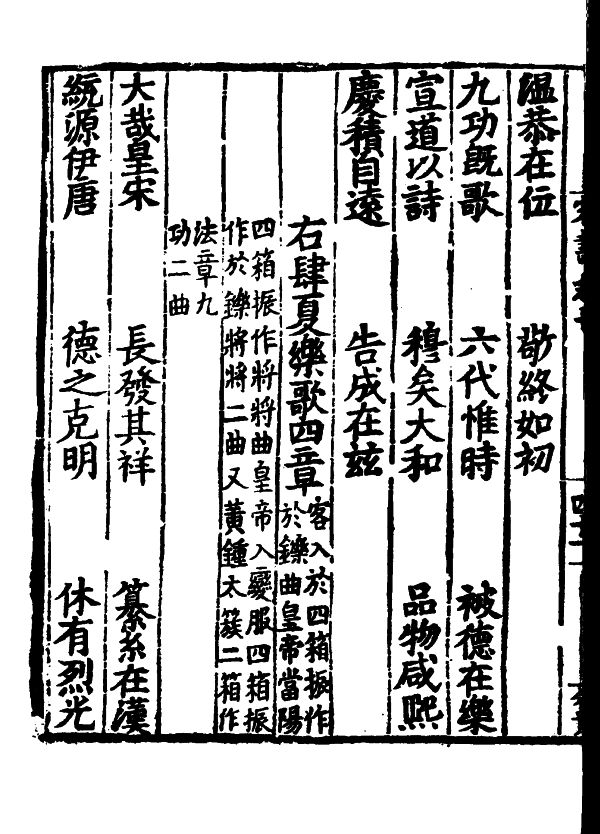 温恭在位　敬終如初
九功既歌　六代惟時　被德在樂
宣道以詩　穆矣大和　品物咸熙
慶積自遠　告成在兹
右肆夏樂歌四章客入於四箱振作
於鑠曲皇帝當陽
四箱振作將將曲皇帝入變服四箱振
作於鑠將將二曲又黃鍾太簇二箱作
法章九
功二曲
大哉皇宋　長發其祥　纂系在漢
統源伊唐　德之克明　休有烈光